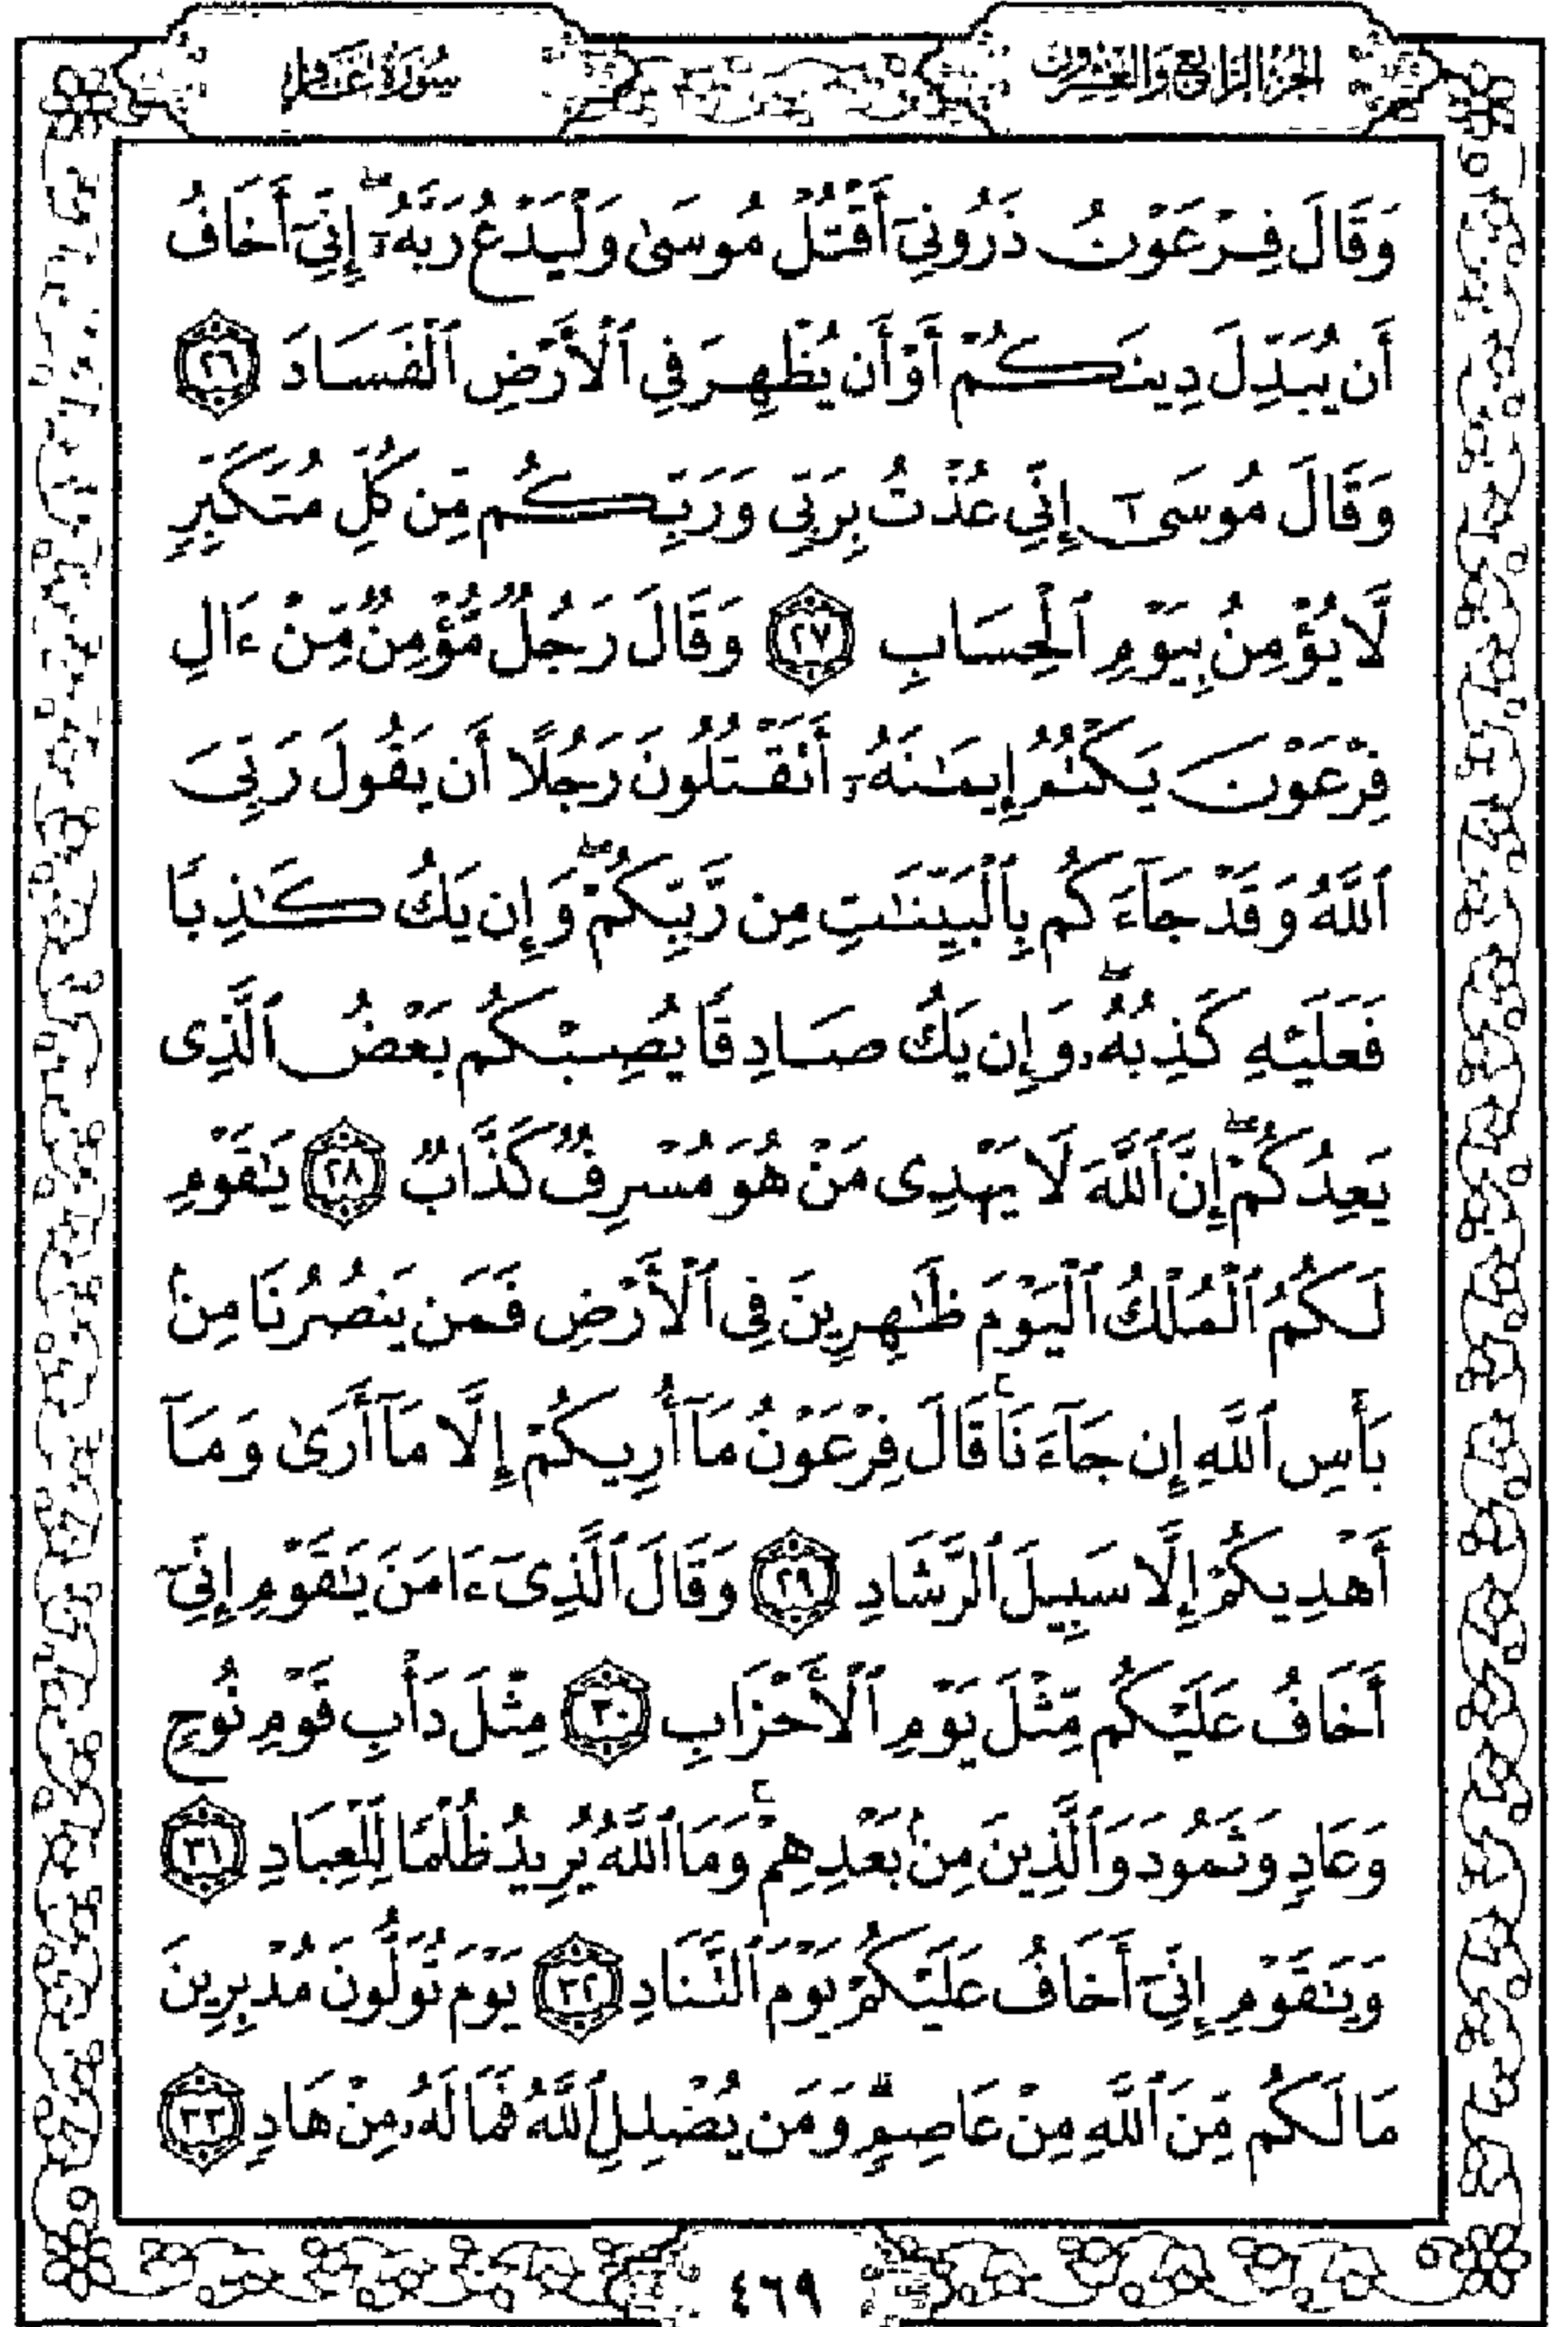 الجزء الرابع والعشرون
سورة غافر
وَقَالَ فِرْعَوْنُ ذَرُونِىٓ أَقْتُلْ مُوسَىٰ وَلْيَدْعُ رَبَّهُۥٓ ۖ إِنِّىٓ أَخَافُ
أَن يُبَدِّلَ دِينَكُمْ أَوْ أَن يُظْهِرَ فِى ٱلْأَرْضِ ٱلْفَسَادَ ٢٦
وَقَالَ مُوسَىٰٓ إِنِّى عُذْتُ بِرَبِّى وَرَبِّكُم مِّن كُلِّ مُتَكَبِّرٍ
لَّا يُؤْمِنُ بِيَوْمِ ٱلْحِسَابِ ٢٧ وَقَالَ رَجُلٌ مُّؤْمِنٌ مِّنْ ءَالِ
فِرْعَوْنَ يَكْتُمُ إِيمَٰنَهُۥٓ أَتَقْتُلُونَ رَجُلًا أَن يَقُولَ رَبِّىَ
ٱللَّهُ وَقَدْ جَآءَكُم بِٱلْبَيِّنَٰتِ مِن رَّبِّكُمْ ۖ وَإِن يَكُ كَٰذِبًا
فَعَلَيْهِ كَذِبُهُۥ ۖ وَإِن يَكُ صَادِقًا يُصِبْكُم بَعْضُ ٱلَّذِى
يَعِدُكُمْ ۖ إِنَّ ٱللَّهَ لَا يَهْدِى مَنْ هُوَ مُسْرِفٌ كَذَّابٌ ٢٨ يَٰقَوْمِ
لَكُمُ ٱلْمُلْكُ ٱلْيَوْمَ ظَٰهِرِينَ فِى ٱلْأَرْضِ فَمَن يَنصُرُنَا مِنۢ
بَأْسِ ٱللَّهِ إِن جَآءَنَا ۚ قَالَ فِرْعَوْنُ مَآ أُرِيكُمْ إِلَّا مَآ أَرَىٰ وَمَآ
أَهْدِيكُمْ إِلَّا سَبِيلَ ٱلرَّشَادِ ٢٩ وَقَالَ ٱلَّذِىٓ ءَامَنَ يَٰقَوْمِ إِنِّىٓ
أَخَافُ عَلَيْكُم مِّثْلَ يَوْمِ ٱلْأَحْزَابِ ٣٠ مِثْلَ دَأْبِ قَوْمِ نُوحٍ
وَعَادٍ وَثَمُودَ وَٱلَّذِينَ مِنۢ بَعْدِهِمْ ۚ وَمَا ٱللَّهُ يُرِيدُ ظُلْمًا لِّلْعِبَادِ ٣١
وَيَٰقَوْمِ إِنِّىٓ أَخَافُ عَلَيْكُمْ يَوْمَ ٱلتَّنَادِ ٣٢ يَوْمَ تُوَلُّونَ مُدْبِرِينَ
مَا لَكُم مِّنَ ٱللَّهِ مِنْ عَاصِمٍ ۗ وَمَن يُضْلِلِ ٱللَّهُ فَمَا لَهُۥ مِنْ هَادٍ ٣٣
٤٦٩